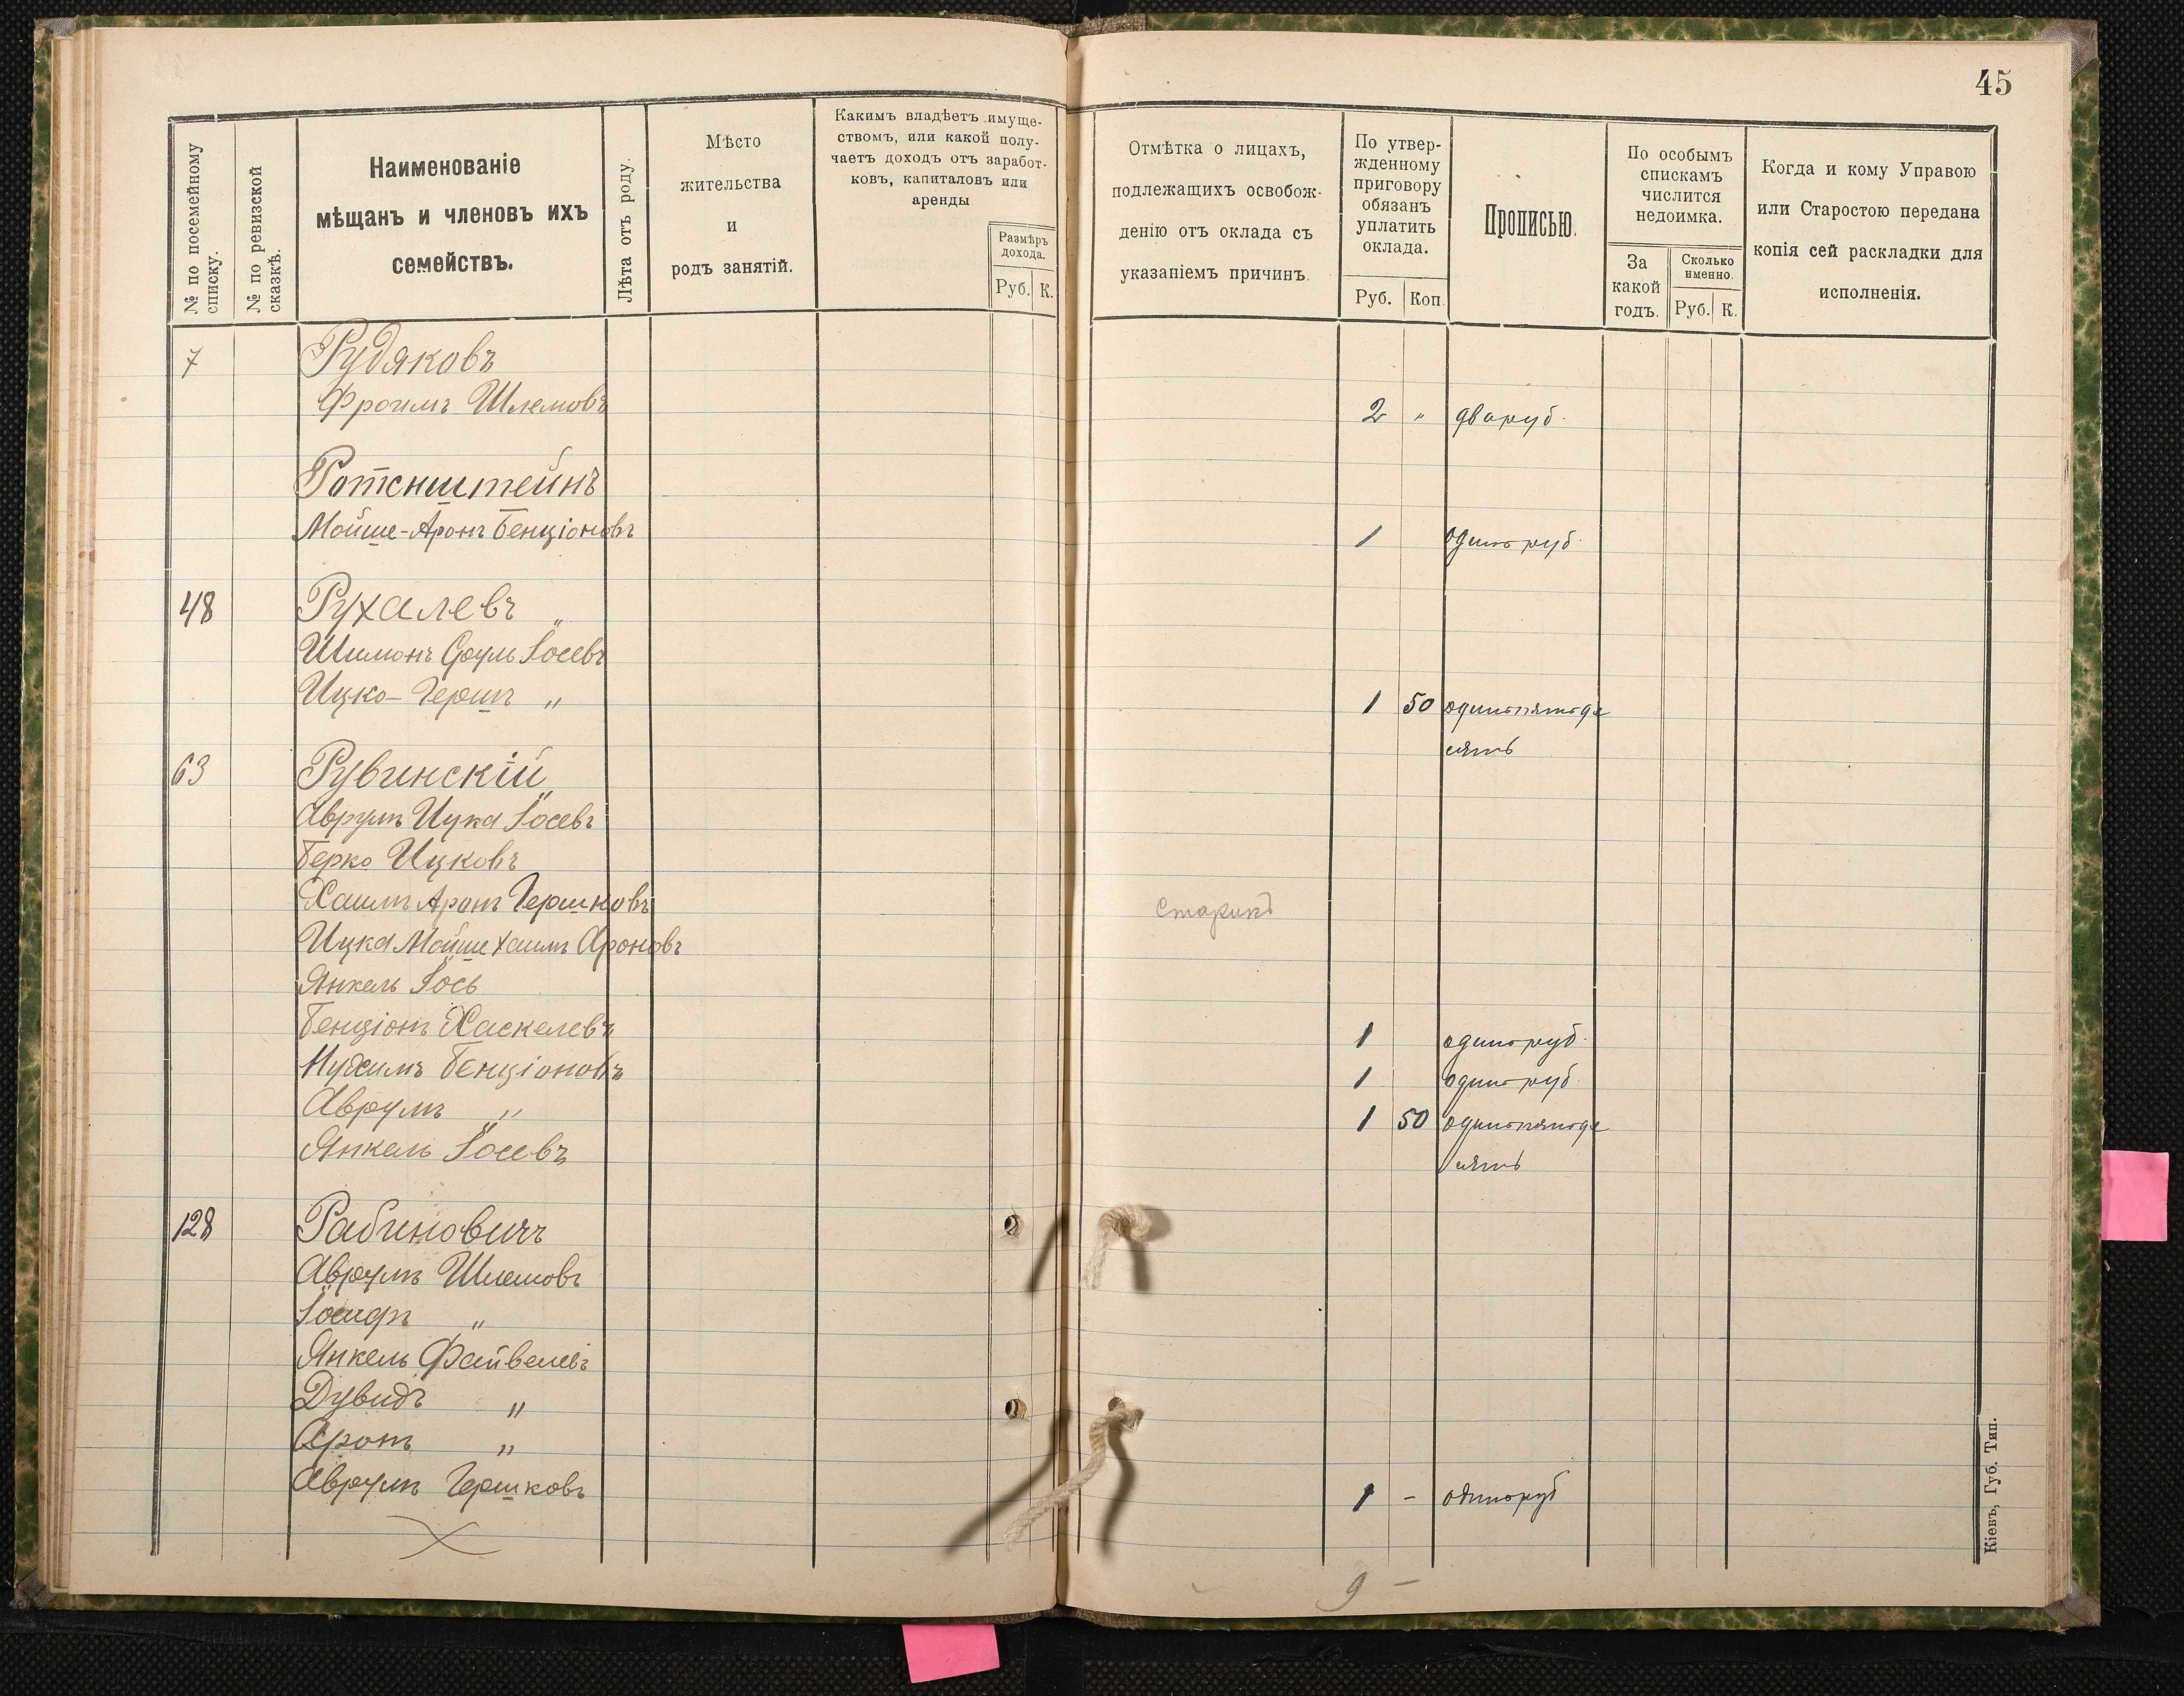 45
№ по посемейному списку.
№ по ревизской сказкѣ.
Наименованіе
мѣщанъ и членовъ ихъ
семействъ.
Лѣта отъ роду.
Мѣсто
жительства
и
родъ занятій.
Какимъ владѣетъ имуще-
ствомъ, или какой полу-
чаетъ доходъ отъ заработ-
ковъ, капиталовъ или
аренды
Размѣръ
дохода.
Руб. К.
Отмѣтка о лицахъ,
подлежащихъ освобож-
денію отъ оклада съ
указаніемъ причинъ.
По утвер-
жденному
приговору
обязанъ
уплатить
оклада.
Руб. Коп.
Прописью.
По особымъ
спискамъ
числится
недоимка.
За
какой
годъ.
Сколько
именно.
Руб. К.
Когда и кому Управою
или Старостою передана
копія сей раскладки для
исполненія.
7 Рудяковъ
Фроимъ Шлемовъ 2 " два руб.
Ротенштейнъ
Мойше-Аронъ Бенціоновъ 1 одинъ руб.
48 Рухалевъ
Шимонъ Сруль Іосевъ
Ицко-Гершъ " 1 50 одинъ пятьде
сятъ
63 Рувинскій
Аврумъ Ицка Іосевъ
Берко Ицковъ
Хаимъ Аронъ Гершковъ старикъ
Ицка Мойше Хаимъ Ароновъ
Янкель Іось
Бенціонъ Хаскелевъ 1 одинъ руб.
Нухимъ Бенціоновъ 1 одинъ руб.
Аврумъ " 1 50 одинъ пятьде
сятъ
Янкель Іосевъ
128 Рабиновичъ
Аврумъ Шлемовъ
Іосифъ "
Янкель Файвелевъ
Дувидъ "
Аронъ "
Аврумъ Гершковъ 1 - одинъ руб
9 -
Кіевъ, Губ. Тип.